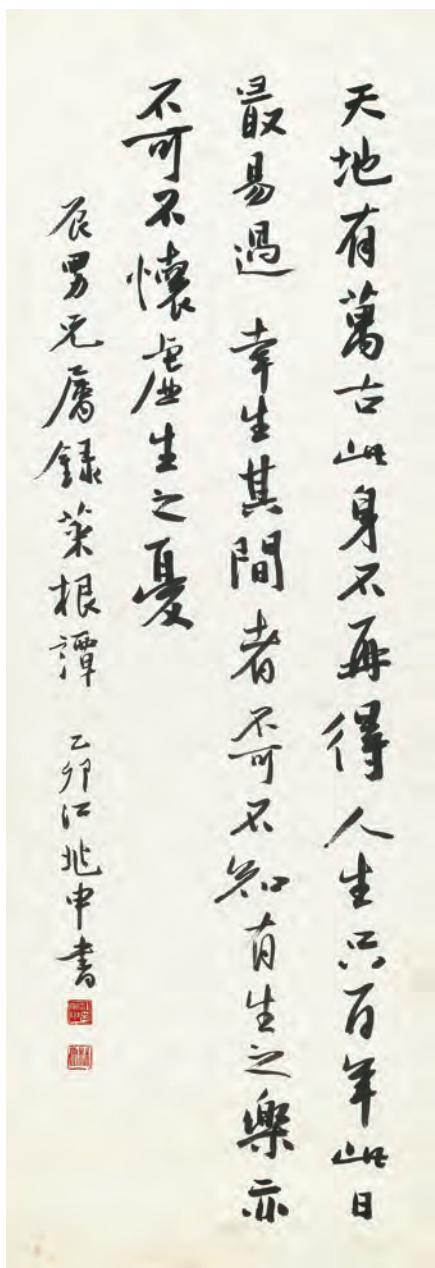 天地有萬古此身不再得人生只百年此日
最易過 幸生其間者不可不知有生之樂亦
不可不懷虛生之憂
辰男兄屬錄菜根譚 乙卯江兆申書